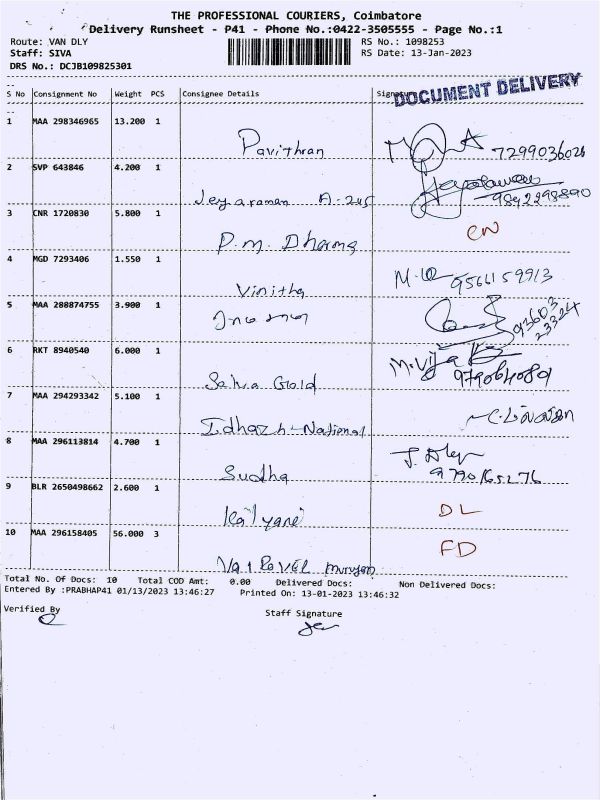 THE PROFESSIONAL COURIERS, Coimbatore
Delivery Runsheet - P41 - Phone No.:0422-3505555 - Page No.:1
Route: VAN DLY RS No.: 1098253
Staff: SIVA RS Date: 13-Jan-2023
DRS No.: DCJB109825301
DOCUMENT DELIVERY
S No Consignment No Weight PCS Consignee Details
1 MAA 298346965 13.200 1
Pavithran 7299036026
2 SVP 643846 4.200 1
Jeyaraman A-245 9842298890
3 CNR 1720830 5.800 1
P.m. Dharma CN
4 MGD 7293406 1.550 1
Vinitha 9566159913
5 MAA 288874755 3.900 1
93603
23324
6 RKT 8940540 6.000 1
Gold
7 MAA 294293342 5.100 1
Idhazh-National
8 MAA 296113814 4.700 1
Sudha
9 BLR 2650498662 2.600 1
Kalyani DL
10 MAA 296158405 56.000 3
FD
Total No. Of Docs: 10 Total COD Amt: 0.00 Delivered Docs: Non Delivered Docs:
Entered By :PRABHAP41 01/13/2023 13:46:27 Printed On: 13-01-2023 13:46:32
Verified By Staff Signature